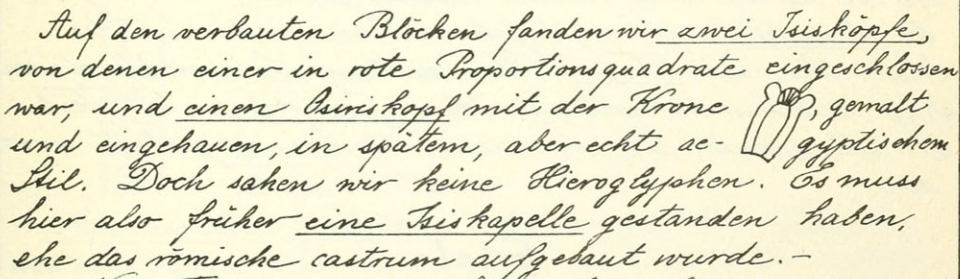 Auf den verbauten Blöcken fanden wir zwei Isisköpfe,
von denen einer in rote Proportionsquadrate eingeschlossen
war, und einen Osiriskopf mit der Krone , gemalt
und eingehauen, in spätem, aber echt ae- gyptischem
Stil. Doch sahen wir keine Hieroglyphen. Es muss
hier also früher eine Isiskapelle gestanden haben,
ehe das römische castrum aufgebaut wurde. —